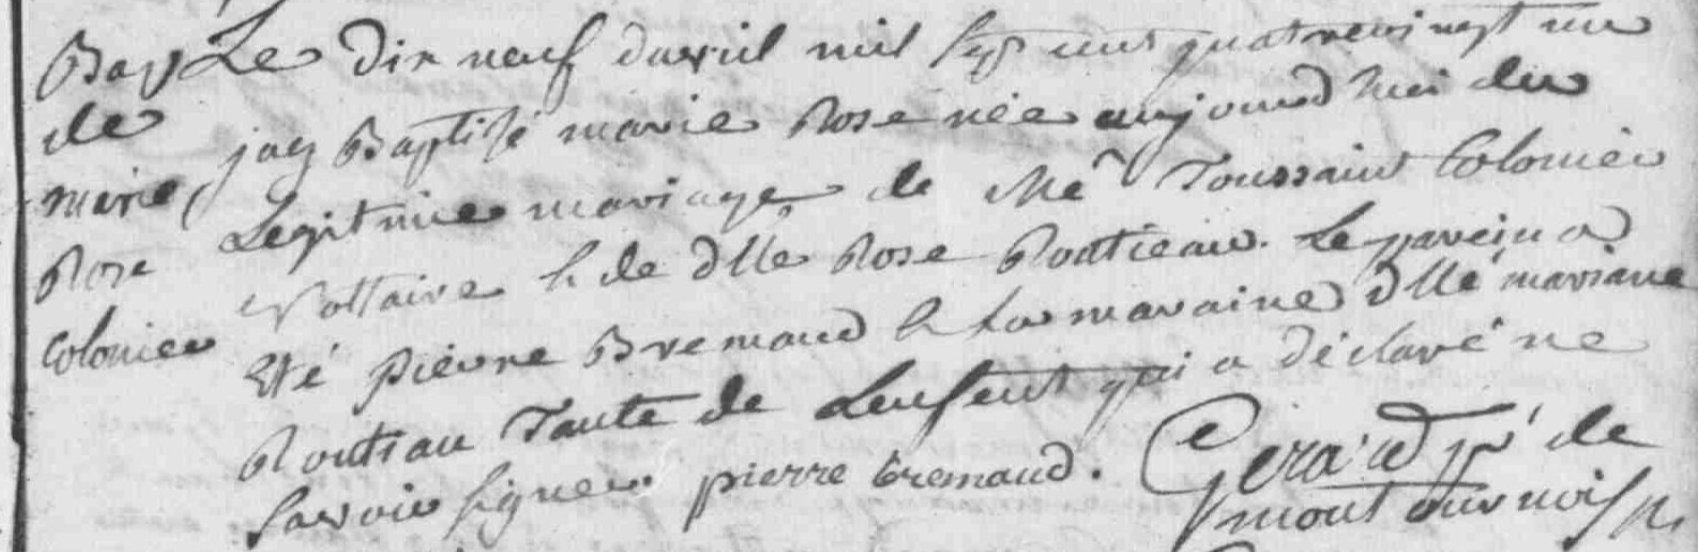 Bap
de
marie
Rose
Colonier
Le Dix neuf davril mil sept cent quatrevingt un
jay Baptisé marie Rose née aujourd huy du
Legitmie mariage de Me Toussaint Colonier
Voltaire & de dlle Rose Routieau. Le parein a
Eté pierre Bremaud & La maraine dlle mariane
Routiau Tante de Lenfent qui a déclaré ne
savoir signer. pierre bremaud. Gerard pr de
montournois